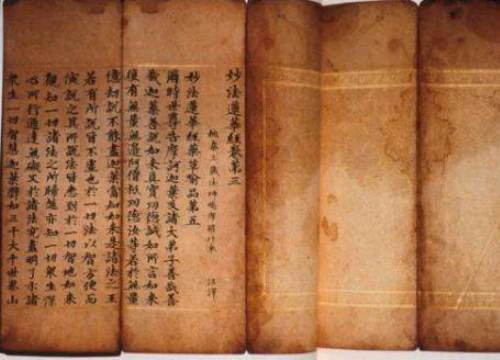 妙法蓮華經卷第三
姚秦三藏法師鳩摩羅什奉 詔譯
妙法蓮華經藥草喻品第五
爾時世尊告摩訶迦葉及諸大弟子善哉善
哉迦葉善說如來真實功德誠如所言如來
復有無量無邊阿僧祇功德汝等若於無量
億劫說不能盡迦葉當知如來是諸法之王
若有所說皆不虛也於一切法以智方便而
演說之其所說法皆悉到於一切智地如來
觀知一切諸法之所歸趣亦知一切衆生深
心所行通達無礙又於諸法究盡明了示諸
衆生一切智慧迦葉譬如三千大千世界山